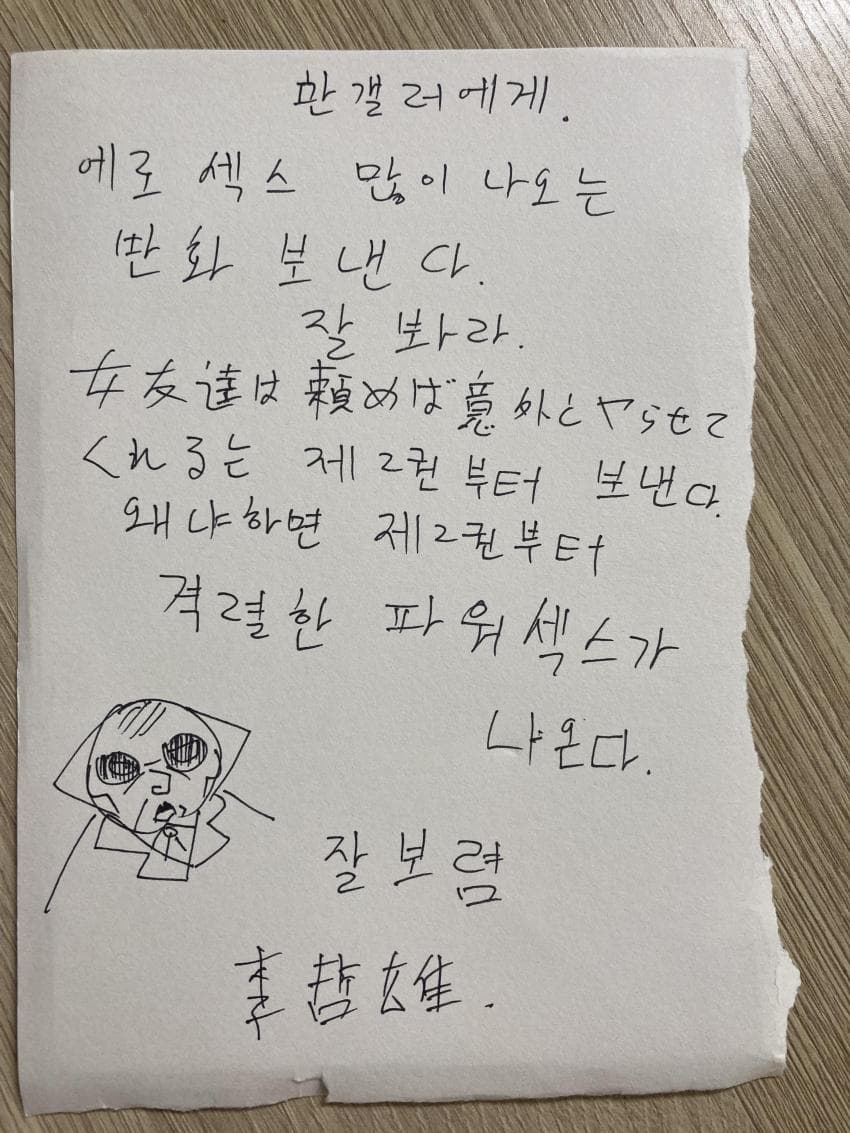 한갤러에게.
에로 섹스 많이 나오는
만화 보낸다.
잘 봐라.
女友達は頼めば意外とヤらせて
くれる는 제2권부터 보낸다.
왜냐하면 제2권부터
격렬한 파워섹스가
나온다.
잘보렴
哲雄.